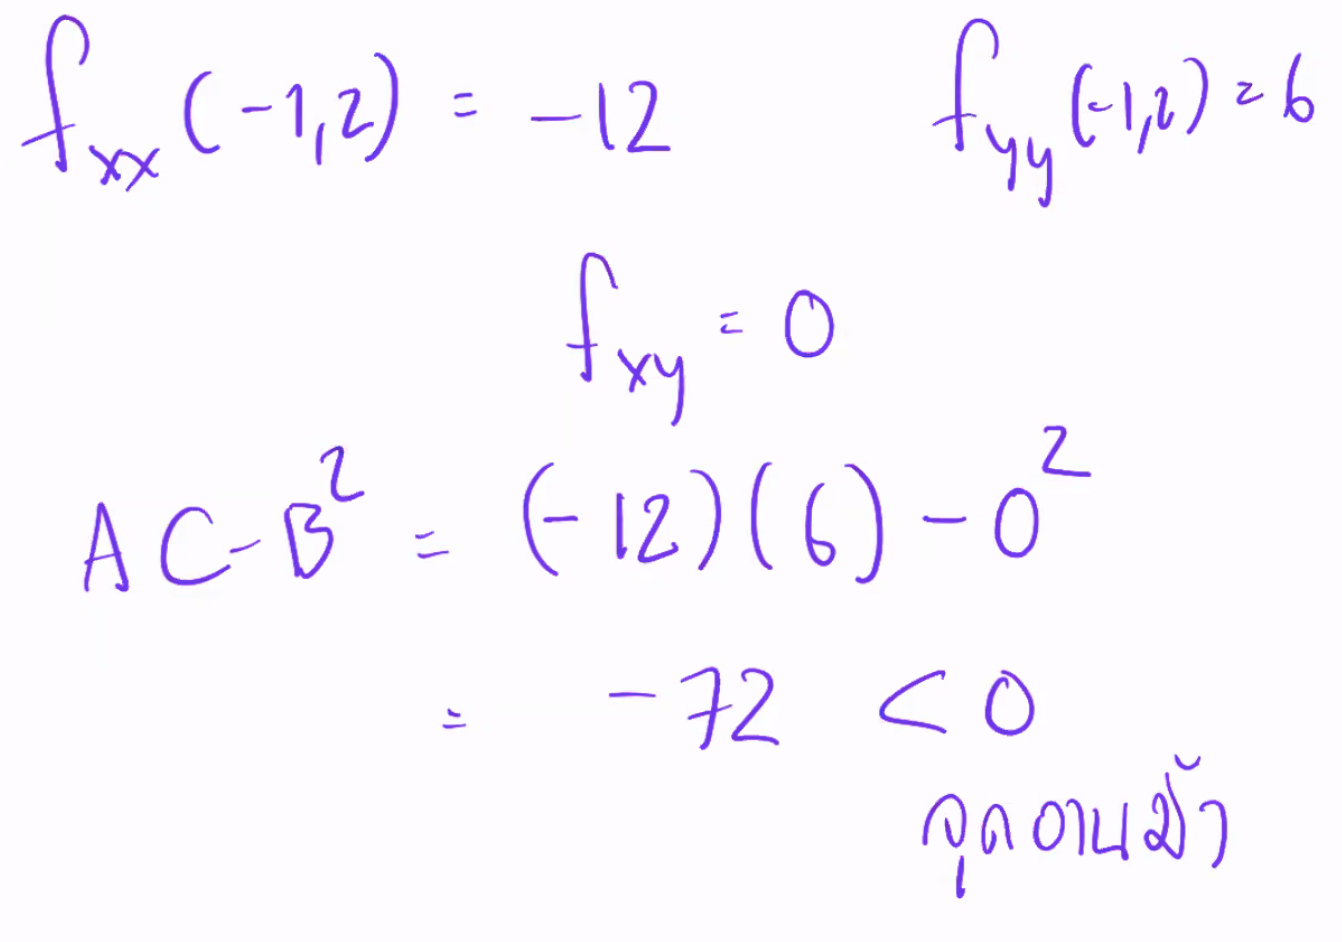 f_xx (-1,2) = -12    f_yy (-1,2) = 6
f_xy = 0
AC-B² = (-12)(6) - 0²
= -72 < 0
จุดอานม้า